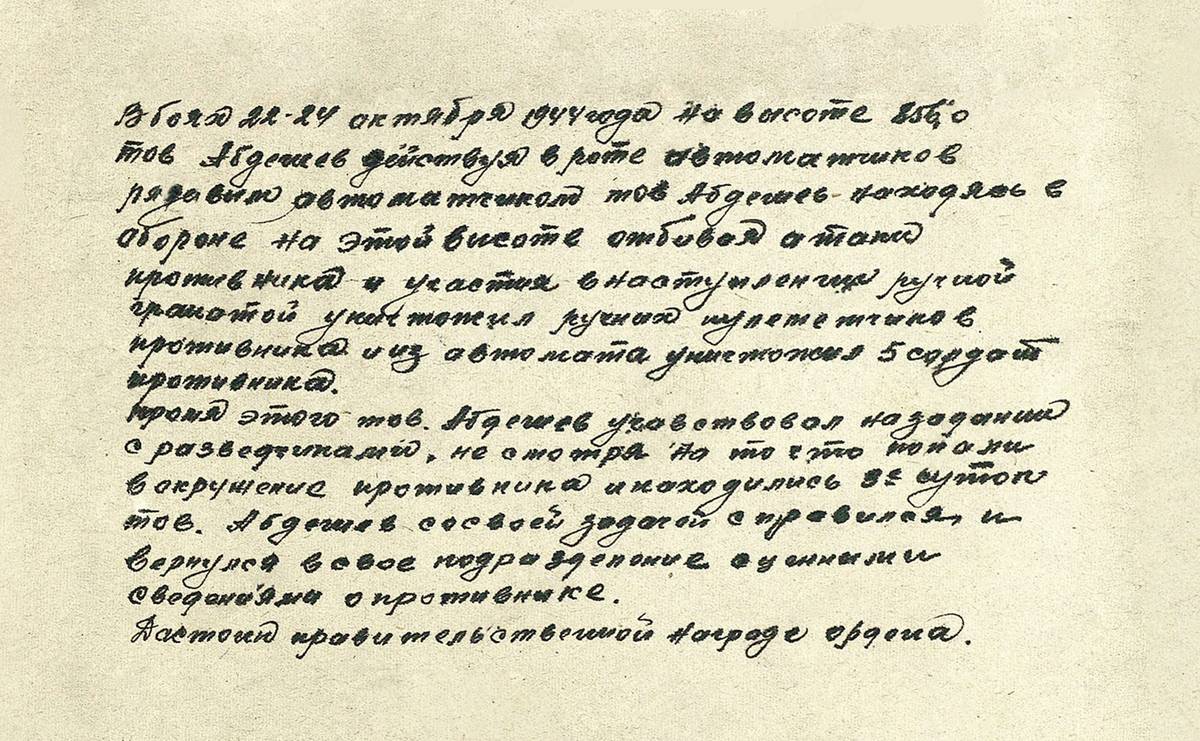 В боях 22-24 октября 1944 года на высоте
тов Абдешев действуя в роте автоматчиков
рядавым автоматчиком тов Абдешев находясь в
обороне на этой высоте отбивая атаки
противника и участия в наступлении ручной
гранатой уничтожил ручных пулеметчиков
противника и из автомата уничтожил 5 солдат
противника.
кромя этого тов. Абдешев учавствовал на задании
с разведчиками, не смотря на то что попали
в окружение противника и находились суток
тов. Абдешев со своей задачей справился, и
вернулся в свое подразделение с ценными
сведениями о противнике.
Дастоин правительственной награде ордена.